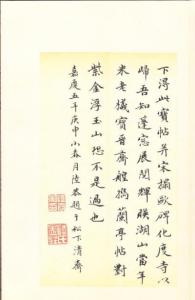 下得此寶帖并宋搨歐碑化度寺以
歸吾知蓬窓展閱輝暎湖山當年
米老攜寶晉齋舫搨蘭亭帖對
紫金浮玉山恐不是過也
嘉慶五年庚申小春月陸恭題于松下清齋